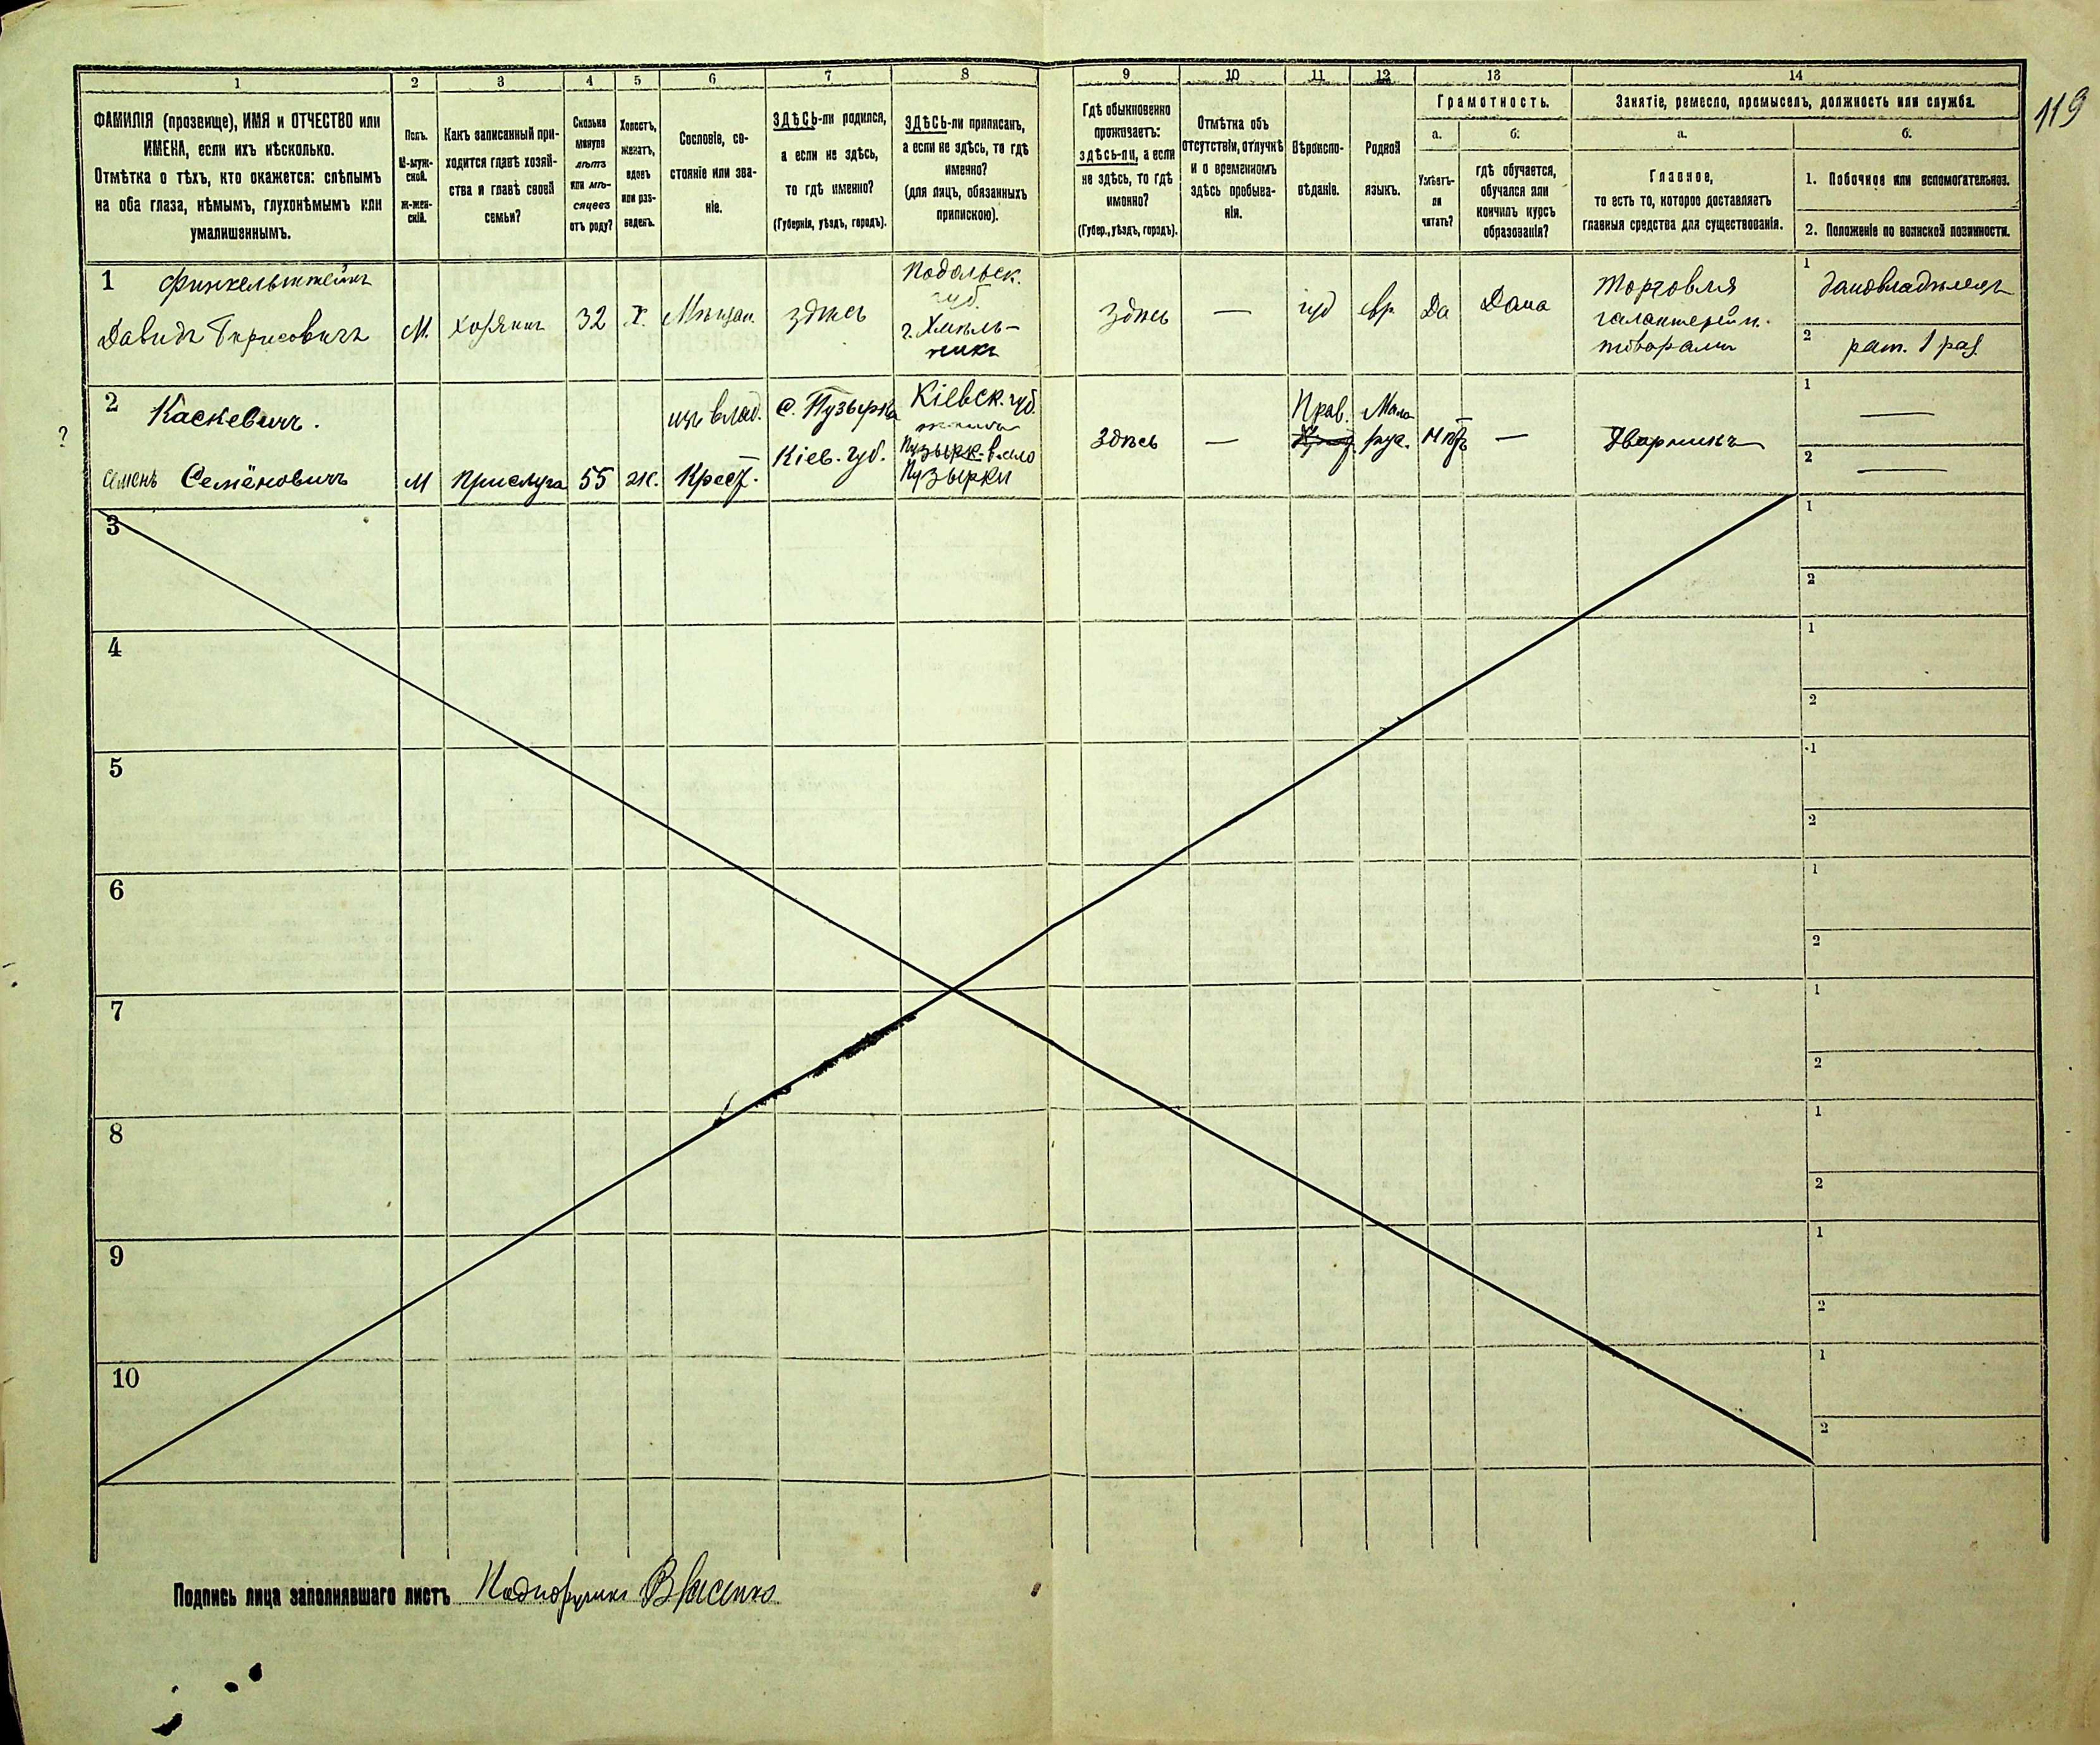 1
2
3
4
5
6
7
8
9
10
11
12
13
14
119
ФАМИЛІЯ (прозвище), ИМЯ и ОТЧЕСТВО или
ИМЕНА, если ихъ нѣсколько.
Отмѣтка о тѣхъ, кто окажется: слѣпымъ
на оба глаза, нѣмымъ, глухонѣмымъ или
умалишеннымъ.
Полъ.
М-муж-
ской.
ж-жен-
скій.
Какъ записанный при-
ходится главѣ хозяй-
ства и главѣ своей
семьи?
Сколько
минуло
лѣтъ
или мѣ-
сяцевъ
отъ роду?
Холостъ,
женатъ,
вдовъ
или раз-
веденъ.
Сословіе, со-
стояніе или зва-
ніе.
ЗДѢСЬ-ли родился,
а если не здѣсь,
то гдѣ именно?
(Губернія, уѣздъ, городъ).
ЗДѢСЬ-ли приписан,
а если не здѣсь, то гдѣ
именно?
(для лицъ, обязанныхъ
припискою).
Гдѣ обыкновенно
проживаетъ:
здѣсь-ли, а если
не здѣсь, то гдѣ
именно?
(Губер., уѣздъ, городъ).
Отмѣтка объ
отсутствіи, отлучкѣ
и о временномъ
здѣсь пребыва-
ніи.
Вѣроиспо-
вѣданіе.
Родной
языкъ.
Грамотность.
а.
Умѣетъ-
ли
читать?
б.
гдѣ обучается,
обучался или
кончилъ курсъ
образованія?
Занятіе, ремесло, промыселъ, должность или служба.
а.
Главное,
то есть то, которое доставляетъ
главныя средства для существованія.
б.
1. Побочное или вспомогательное.
2. Положеніе по воинской повинности.
1 Финкельштейнъ
Давидъ Борисовичъ
М.
хозяинъ
32
х.
Мѣщан.
здѣсь
Подольск.
губ.
г. Хмѣль-
никъ
здѣсь
—
іуд
евр.
Да
Дома
Торговля
галантерейн.
товарами
1 домовладѣлецъ
2 рат. 1 раз.
?
2 Каскевичъ.
Семенъ Семёновичъ
М
Прислуга
55
ж.
изъ влад.
Крест.
с. Пузырки
Кіев. губ.
Кіевск. губ.
Пузырк. в. село
Пузырки
Здѣсь
—
Прав.
Мало
рус.
Нѣтъ
—
Дворникъ
1 —
2 —
3
1
2
4
1
2
5
1
2
6
1
2
7
1
2
8
1
2
9
1
2
10
1
2
Подпись лица заполнявшаго листъ